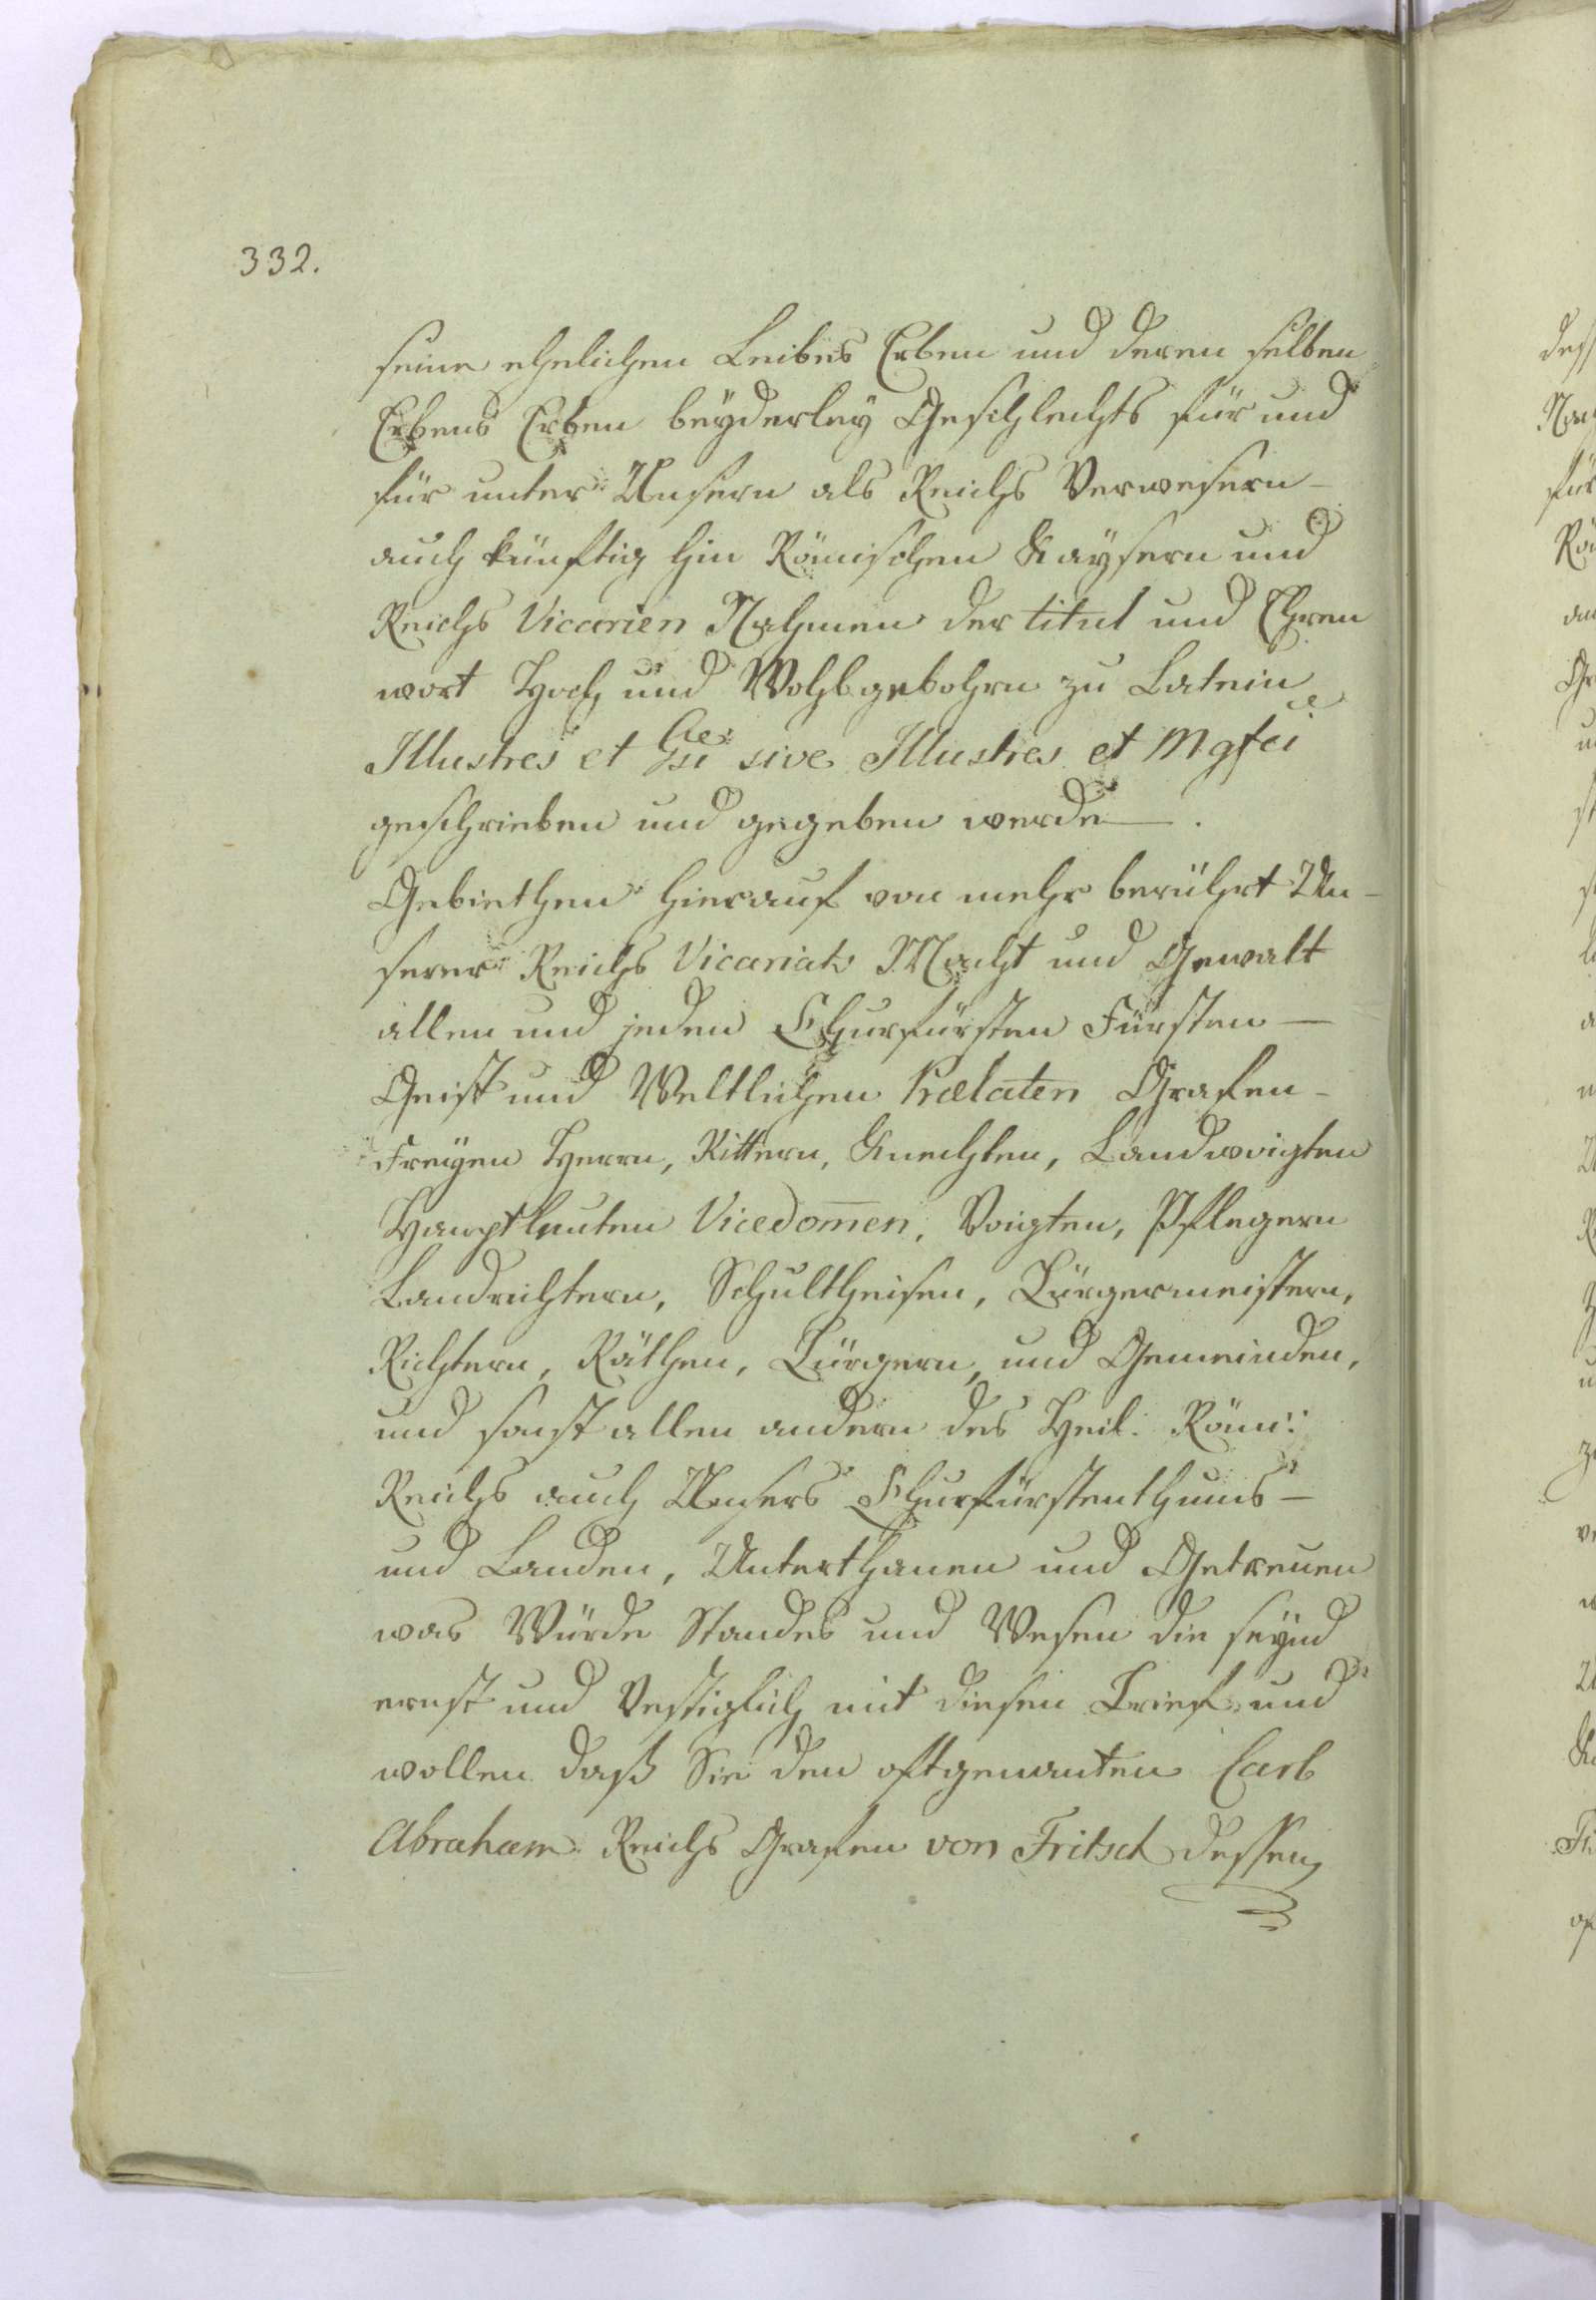 332.
seine ehelichen Leibes Erben und deren selben
Erbens Erben beÿderleÿ Geschlechts für und
für unter Unsern als Reichs Verwesern-
auch künftig hin Römischen Kaÿsern und
Reichs Vicarien Nahmen der titul und Ehren
wort Hoch und Wohlgebohrn zu Latein
Illustres et sive Illustres et Mgfci
geschrieben und gegeben werde.
Gebiethen hierauf von mehr berührt Un-
serer Reichs Vicariats Macht und Gewalt
allen und jeden Churfürsten Fürsten-
Geist und Weltlichen Prælaten Grafen-
Freÿen Herrn, Rittern, Knechten, Landvoigten
Hauptleuten Vicedom̅en, Voigten, Pflegern
Landrichtern, Schultheisen, Bürgermeistern,
Richtern, Räthen, Bürgern, und Gemeinden,
und sonst allen andern des Heil. Röm:
Reichs auch Unsers Churfürstenthums-
und Landen, Unterthanen und Getreuen
was Würde Standes und Wesen die seÿnd
ernst und Vestiglich mit diesen Brief und
wollen daß Sie den oftgenanten Carl
Abraham Reichs Grafen von Fritsch dessen